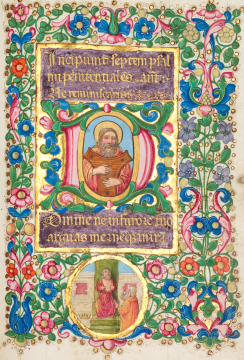 Incipiunt septem psal
mi penitentiales ant
Ne reminiscaris
Domine ne in furore tuo
arguas me neq; in ira